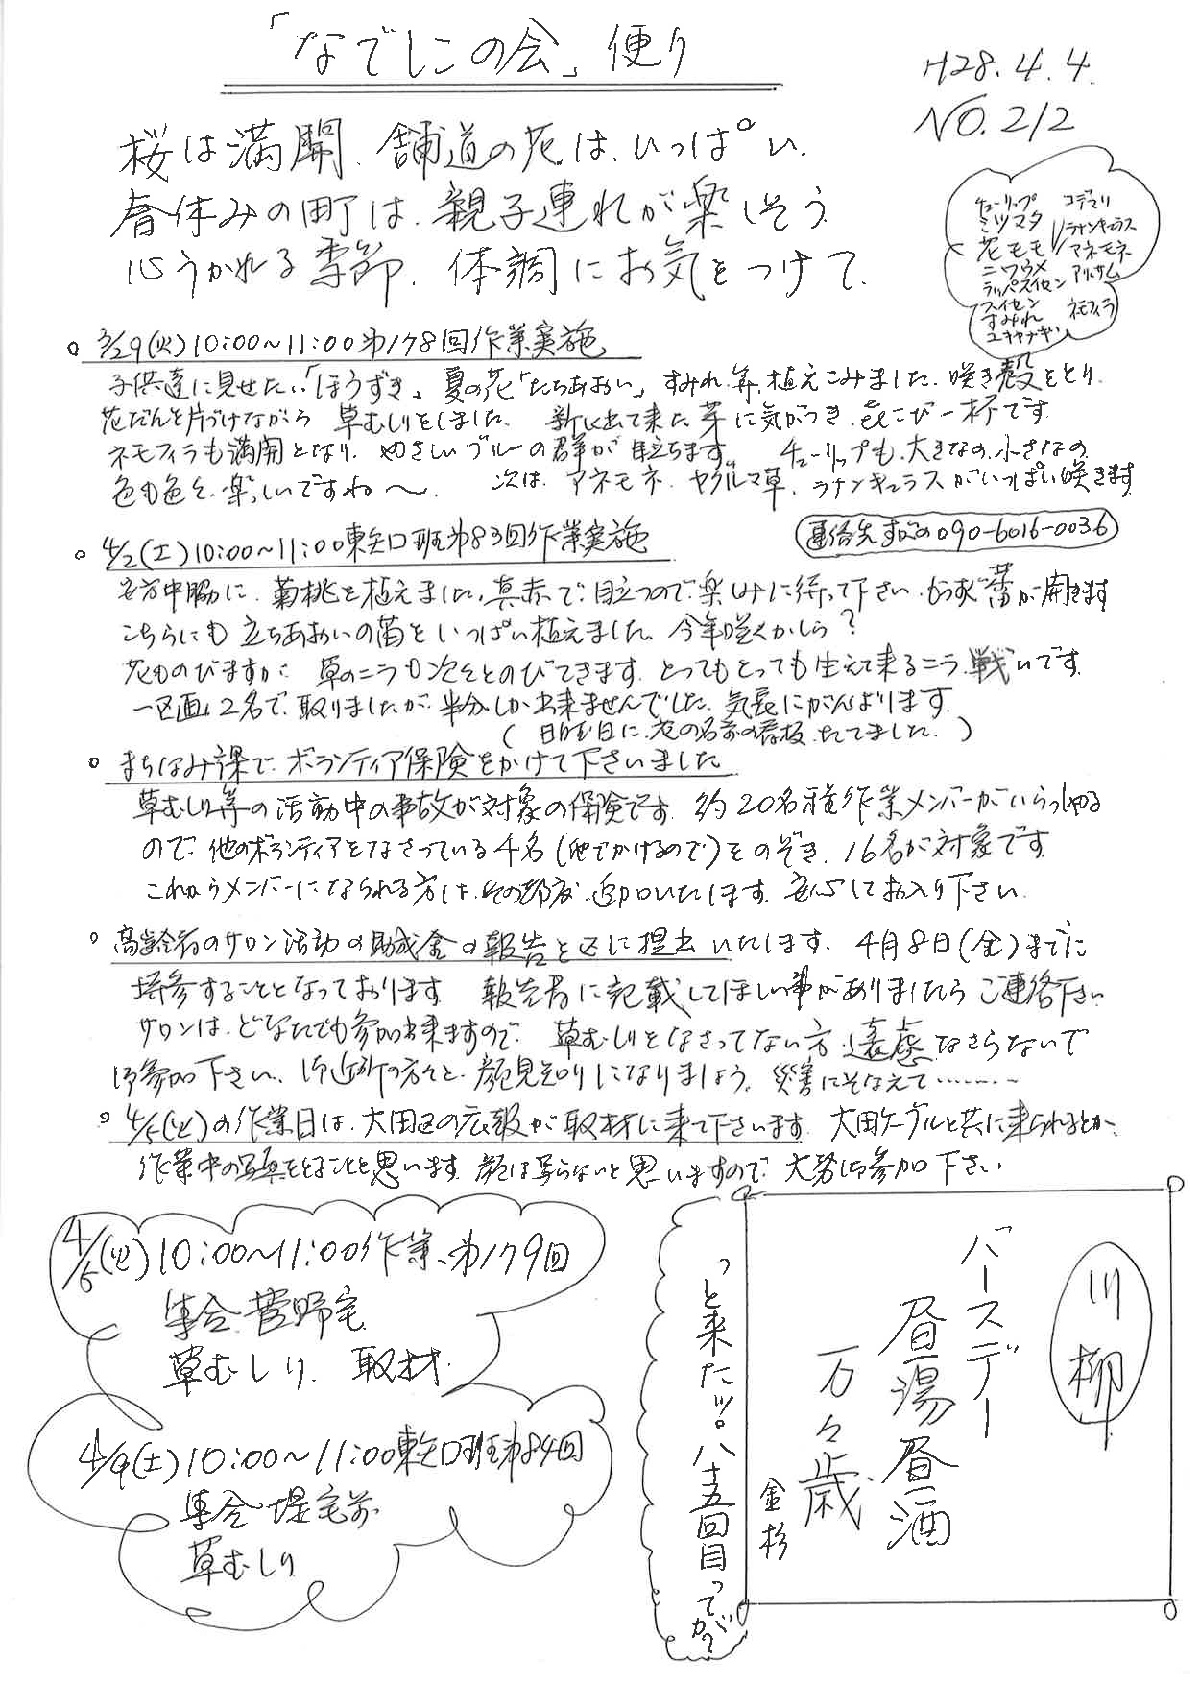 「なでしこの会」便り
H28.4.4.
NO.212
桜は満開、舗道の花は、いっぱい、
春休みの町は、親子連れが楽しそう
心うかれる季節、体調にお気をつけて、
チューリップ
ミツマタ
花モモ
ニワウメ
ラッパスイセン
スイセン
すみれ
ユキヤナギ
コデマリ
ラナンキュラス
アネモネ
アリッサム
ネモフィラ
○ 3/29(火)10:00~11:00第178回作業実施
子供達に見せたい「ほうずき」夏の花「たちあおい」すみれ等、植えこみました、咲き殻をとり、
花だんを片づけながら 草むしりをしました。 新に出て来た芽に気がつき、よろこび一杯です。
ネモフィラも満開となり、やさしいブルーの群が目立ちます。 チューリップも、大きなの、小さなの、
色も色々、楽しいですね~、 次は、アネモネ、ヤグルマ草、ラナンキュラスがいっぱい咲きます
○ 4/2(土)10:00~11:00東矢口班第83回作業実施
連絡先すがの090-6016-0036
安方中脇に、菊桃を植えました、真赤で、目立つので楽しみに待って下さい、もうすぐ蕾が開きます
こちらにも 立ちあおいの苗を いっぱい植えました、今年咲くかしら?
花ものびますが、草のニラも次々とのびてきます、とってもとっても生えて来るニラ、戦いです。
一区画、2名で、取りましたが、半分しか出来ませんでした、気長にがんばります
(日曜日に、花の名前の看板、たてました。)
○ まちなみ課で、ボランティア保険をかけて下さいました
草むしり等の活動中の事故が対象の保険です、約20名程作業メンバーがいらっしゃる
ので、他のボランティアをなさっている4名(他でかけるので)をのぞき、16名が対象です
これからメンバーになられる方は、その都度、追加いたします、安心してお入り下さい、
○ 高齢者のサロン活動の助成金の報告を区に提出いたします、4月8日(金)までに
持参することとなっております 報告書に記載してほしい事がありましたら ご連絡下さい
サロンは、どなたでも参加出来ますので、草むしりをなさってない方、遠慮なさらないで
御参加下さい、御近所の方々と、顔見知りになりましょう、災害にそなえて………
○ 4/5(火)の作業日は、大田区の広報が取材に来て下さいます、大田ケーブルと共に来られるとか、
作業中の写真をとることと思います、顔は写らないと思いますので、大勢御参加下さい
4/5(火)10:00~11:00作業、第179回
集合 菅野宅
草むしり、取材
4/9(土)10:00~11:00東矢口班第84回
集合 堤宅前
草むしり
川柳
バースデー
昼湯昼酒
万々歳
金杉
っと来たッ。八十五回目ってが?